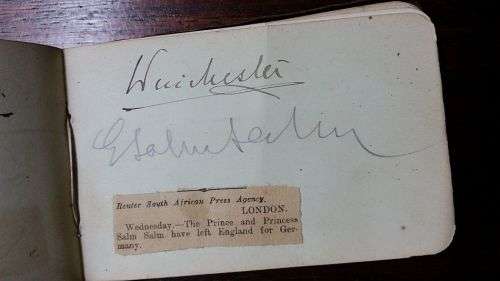 Winchester
E Salm Salm
Reuter South African Press Agency.
LONDON.
Wednesday.—The Prince and Princess
Salm Salm have left England for Ger-
many.